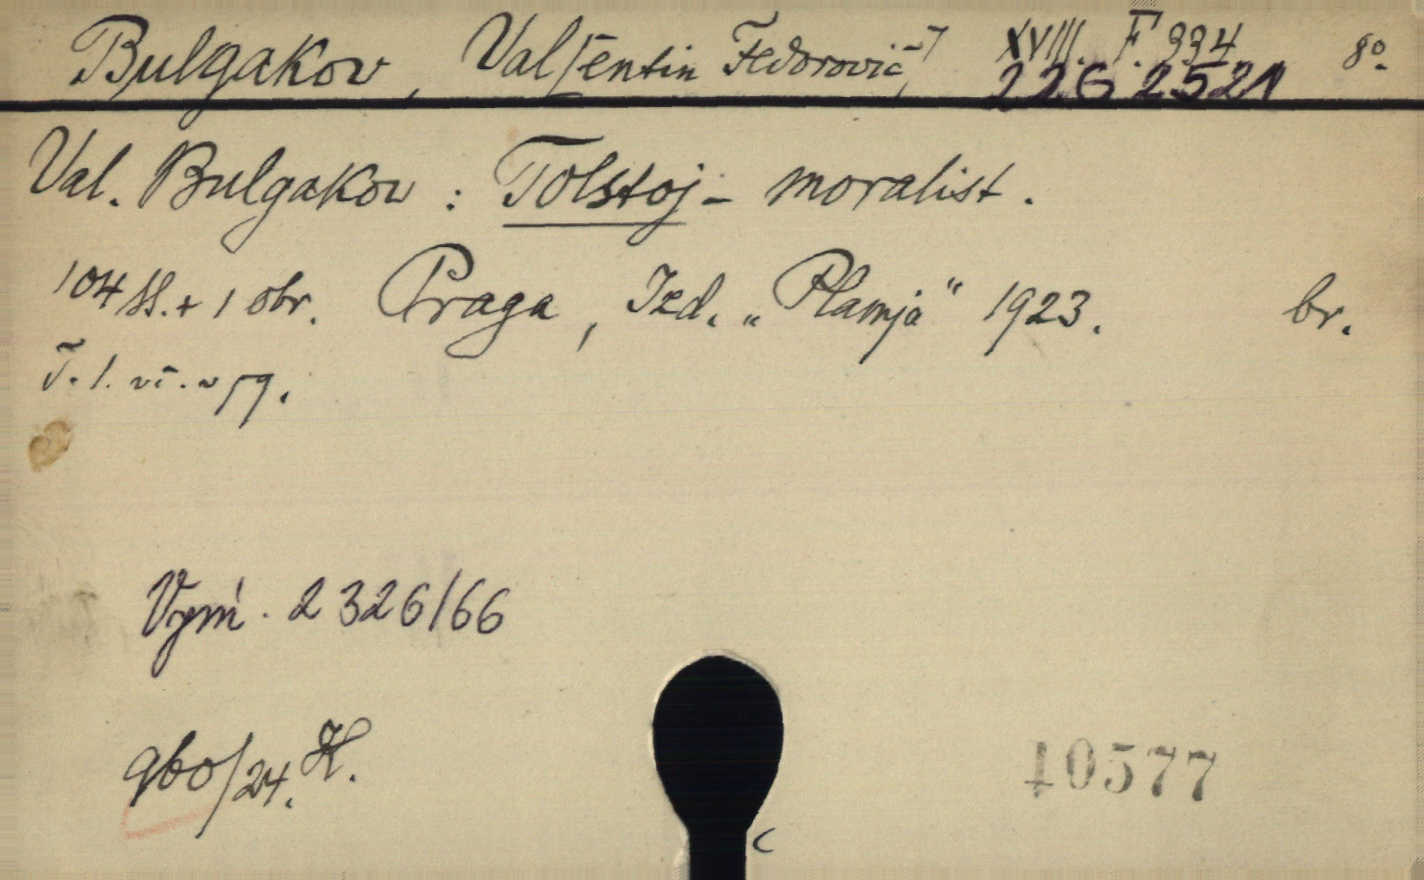 Bulgakov, Val[entin Fedorovič] XVIII. F. 334 8°.
22G 2521
Val. Bulgakov: Tolstoj - moralist.
104 ss. + 1 obr. Praga, Izd. „Plamja“ 1923. br.
T. l. vt.
Vym. 2326/66
960/24. H.
10577